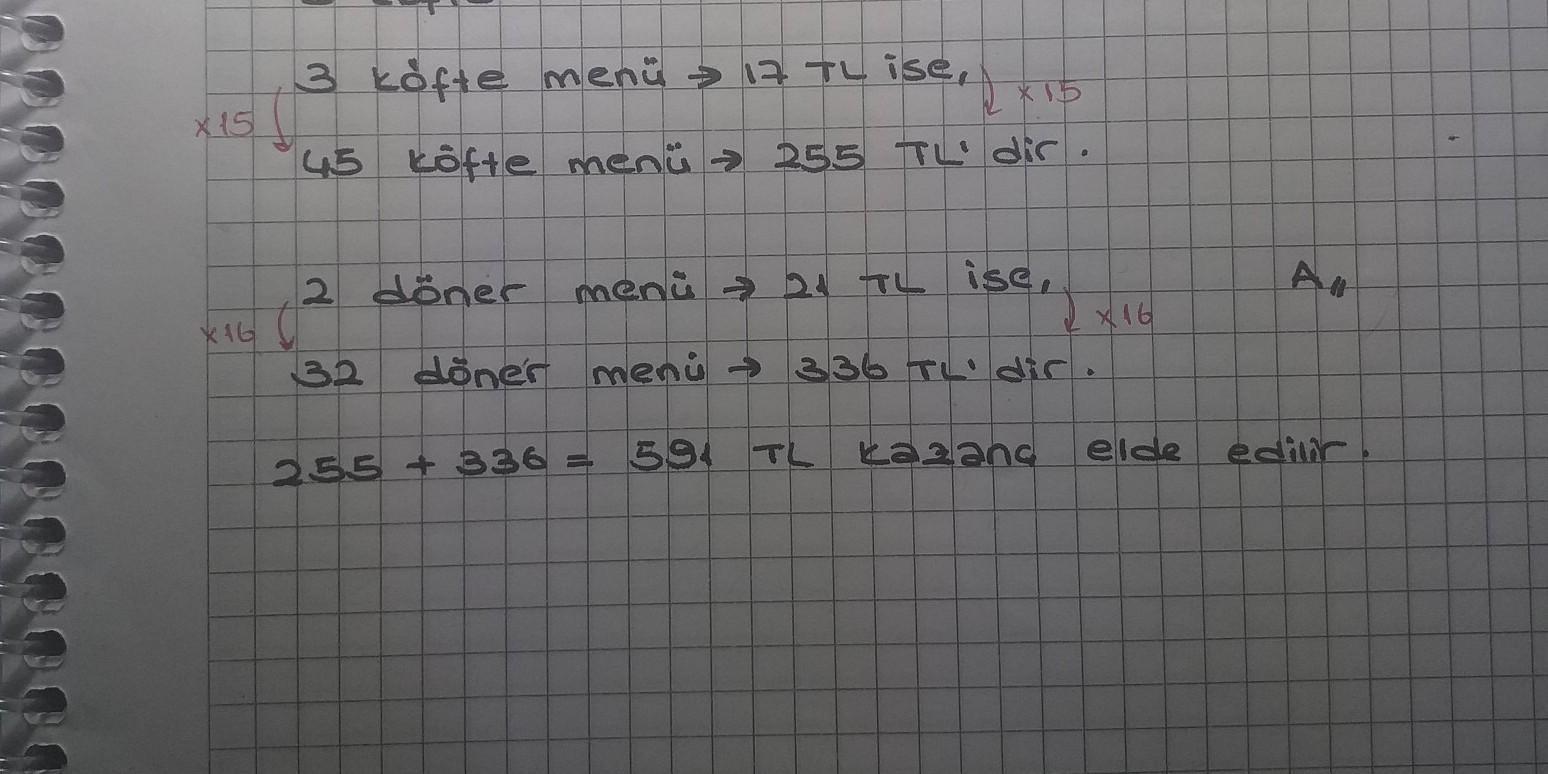 3 köfte menü → 17 TL ise,
x15 x15
45 köfte menü → 255 TL' dir.
2 döner menü → 21 TL ise, A,,
x16 x16
32 döner menü → 336 TL' dir.
255 + 336 = 591 TL kazanç elde edilir.